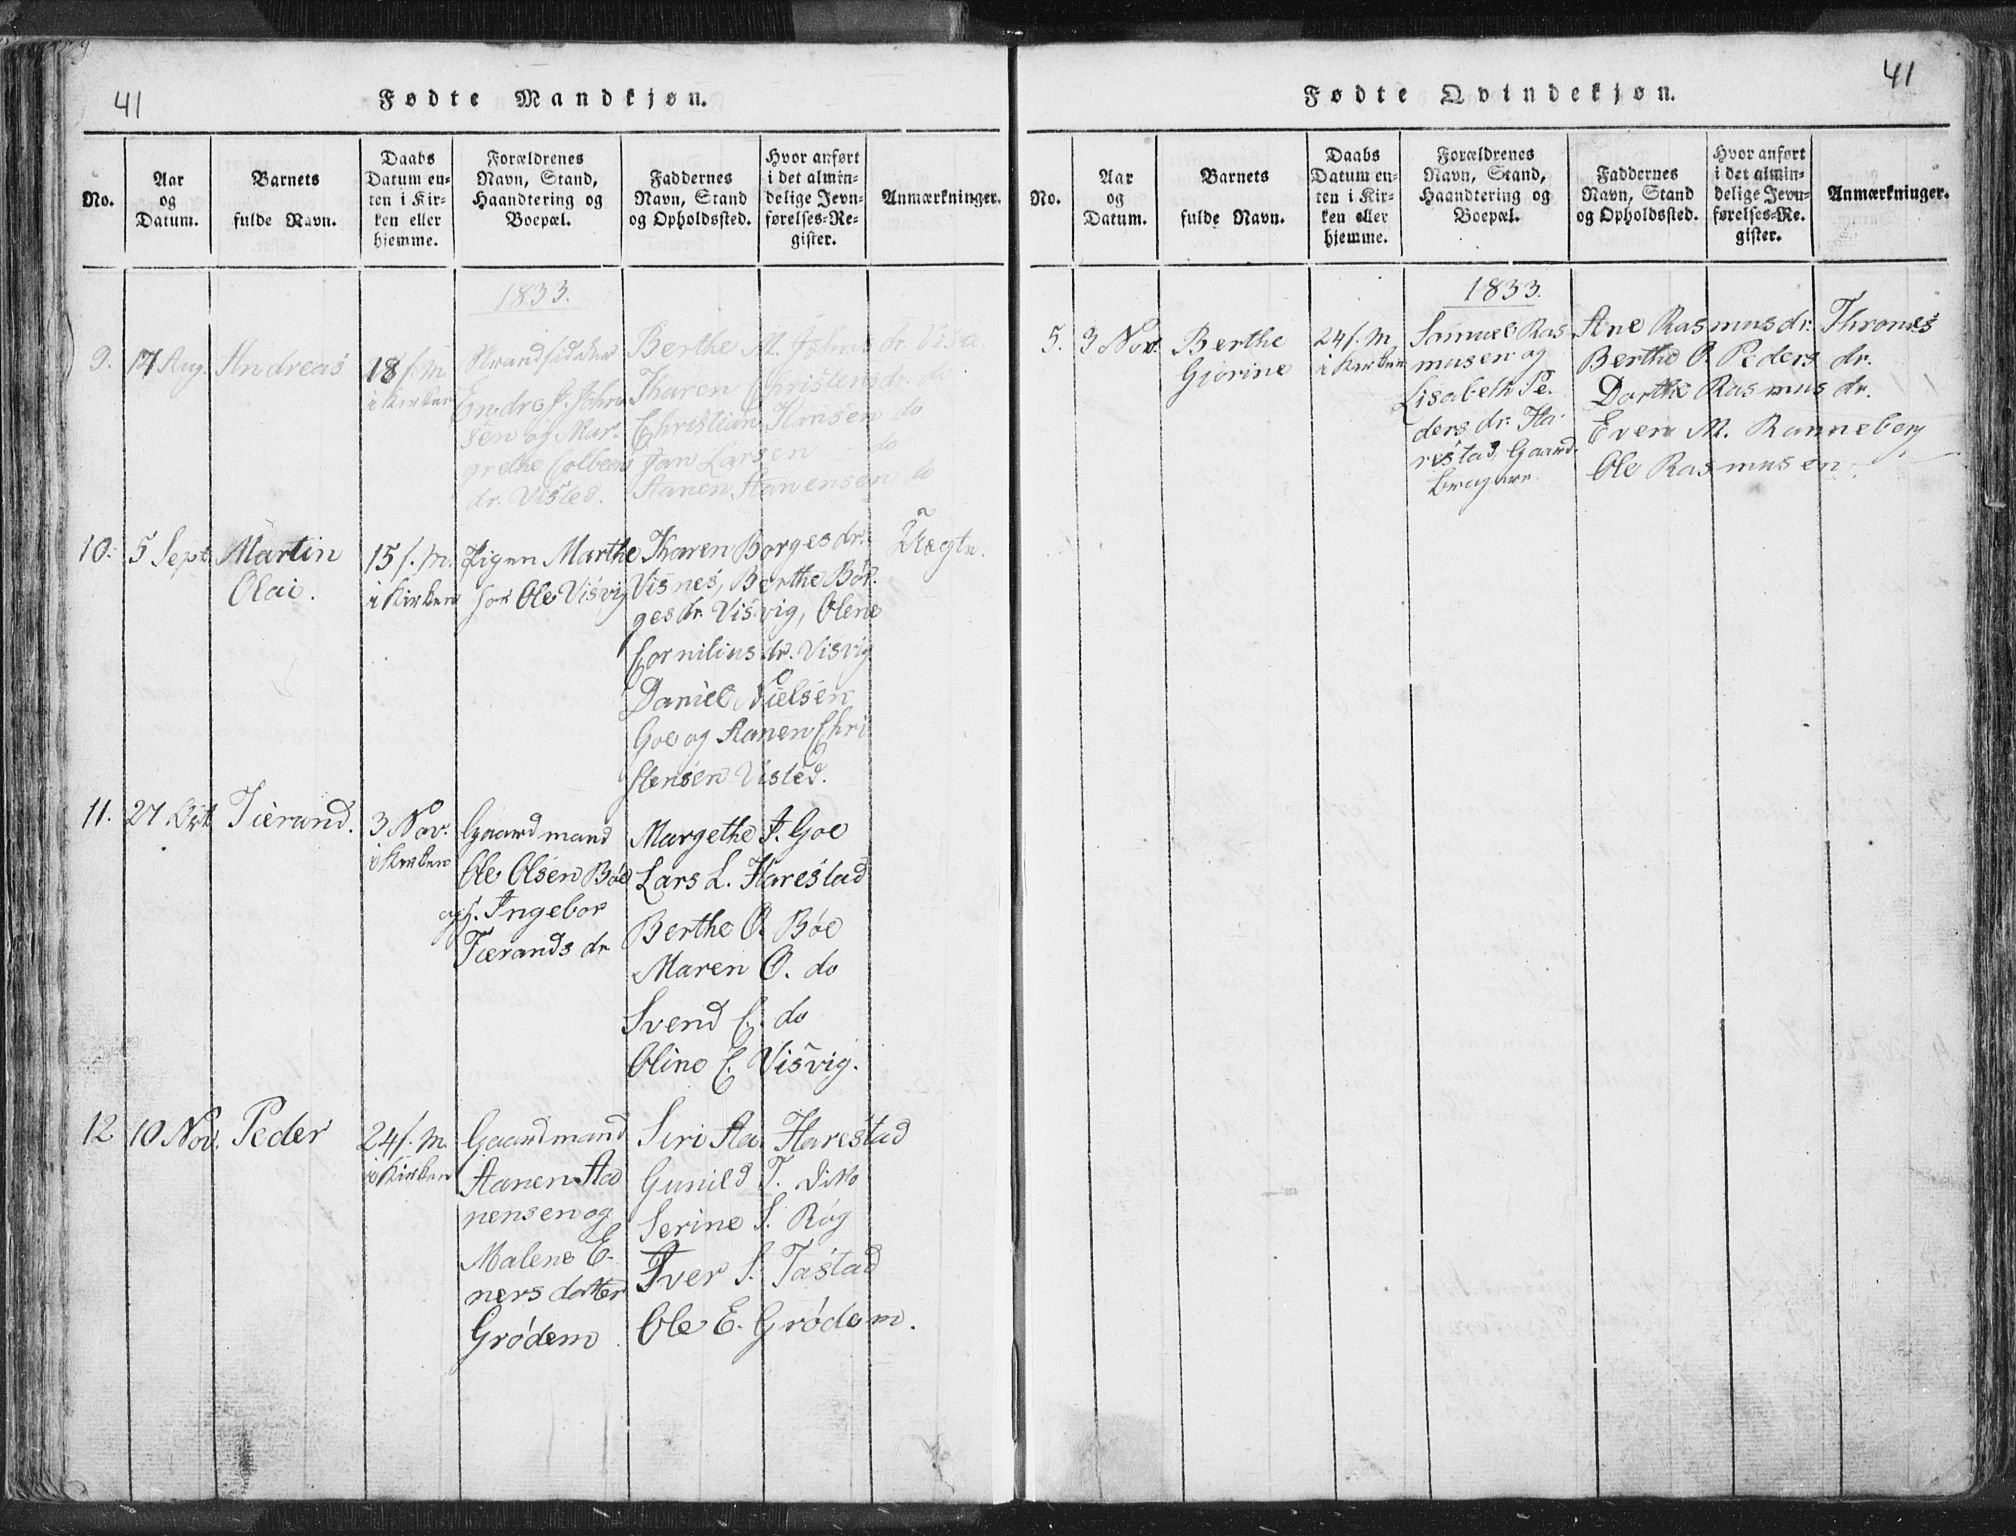 41
Fødte Mandkjøn.
No.
Aar
og
Datum.
Barnets
fulde Navn.
Daabs
Datum en-
ten i Kir-
ken eller
hjemme.
Forældrenes
Navn, Stand,
Haandtering og
Boepæl.
Faddernes
Navn, Stand
og Opholdssted.
Hvor anført
i det almin-
delige Jevn-
førelses-Re-
gister.
Anmærkninger.
1833.
9.
17 Aug.
Andreas
18 s. M
i Kirken
Strandsidder
Endre J. Johan
sen og Mar-
grethe Colbens
dr. Visted.
Berthe M. Johns dr. Viste
Karen Christens dr. do
Christian Hansen do
Jan Larsen do
Aanen Aanensen do
10.
5 Sept.
Martin
Olai.
15 s. M.
i Kirken
Pigen Marthe
for Ole Visvig
Karen Borges dr.
Visnes, Berthe Bør-
ges dr. Visvig, Olene
Cornilius dr. Visvig
Daniel Nielsen
Goe og Aanen Chri
stensen Visted.
Uægte.
11.
27 Oct.
Tierand.
3 Nov.
i Kirken
Gaardmand
Ole Olsen Bøe
og h. Ingebor
Tierands dr
Margethe J. Goe
Lars L. Harestad
Berthe O. Bøe
Maren O. do
Svend C. do
Oline C. Visvig.
12
10 Nov.
Peder
24 s. M.
i Kirken
Gaardmand
Aanen Aa
nensen og
Malene E-
ners datter
Grødem
Siri Aa. Harestad
Gunild T. dito
Serine S. Røg
Iver S. Tastad
Ole E. Grødem.
41
Fødte Qvindekjøn.
No.
Aar
og
Datum.
Barnets
fulde Navn.
Daabs
Datum en-
ten i Kir-
ken eller
hjemme.
Forældrenes
Navn, Stand,
Haandtering og
Boepæl.
Faddernes
Navn, Stand
og Opholdssted.
Hvor anført
i det almin-
delige Jevn-
førelses-Re-
gister.
Anmærkninger.
1833.
5.
3 Nov.
Berthe
Gjorine
24 s. M
i Kirken
Samuel Ras
musen og
Lisabeth Pe-
ders dr. Ha-
restad, Gaard-
brugere
Ane Rasmus dr. Thrones
Berthe O. Peders dr.
Dorthe Rasmus dr.
Even M. Ranneberg
Ole Rasmusen.